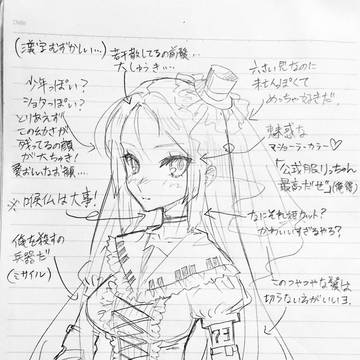 (漢字むずかしい…)
大しゅうき…
少年っぽい?
ショタっぽい?
とりあえず
この幼さが
残ってるの顔
が大ちゅき!
愛おしいなお顔…
※口喉仏は大事!
俺を殺すの
兵器だ
(ミサイル)
六さい児なのに
ませんぽくて
めっちゃ好きだ。
魅惑な
マジョーラ・カラー♡
「公式服りっちゃん
最高だぜ」(俺得)
なにそれ短カット?
かわいいすぎるやろ?
このつやつやな髪は
切らない方がいいヨ